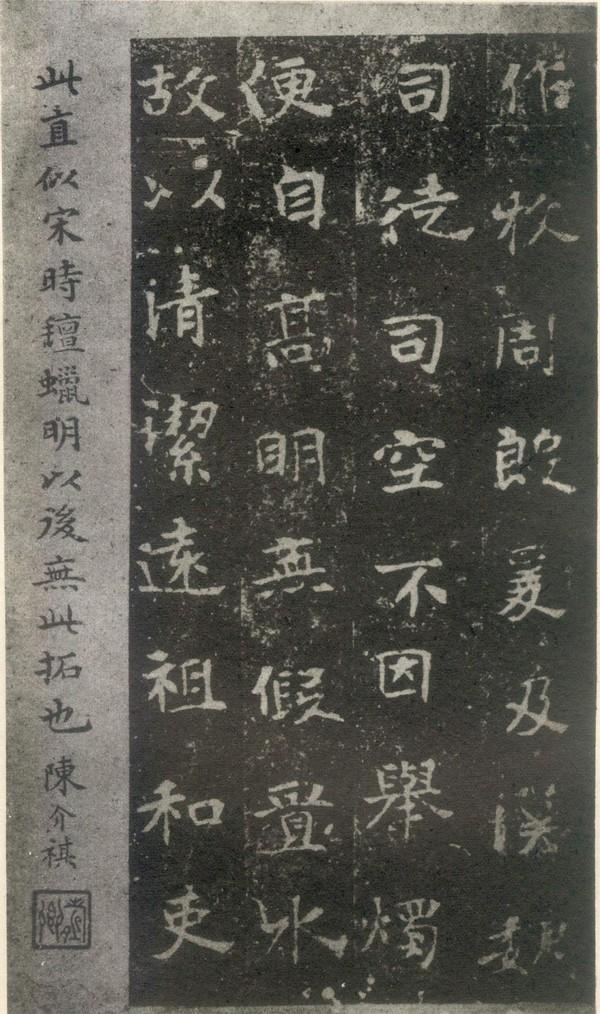 作牧周殷爰及漢魏
司徒司空不因舉燭
便自髙明無假置水
故以清潔遠祖和吏
此直似宋時氊蠟明以後無此拓也 陳介祺
壽卿